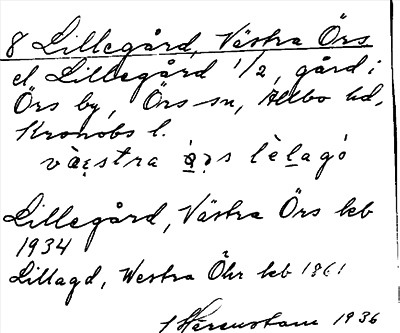 8 Lillegård, Västra Örs
el. Lillegård 1/2, gård i
Örs by, Örs sn, Allbo hd,
Kronobs l.
Lillegård, Västra Örs kb
1934
Lillagd, Westra Öhr kb 1861
1936